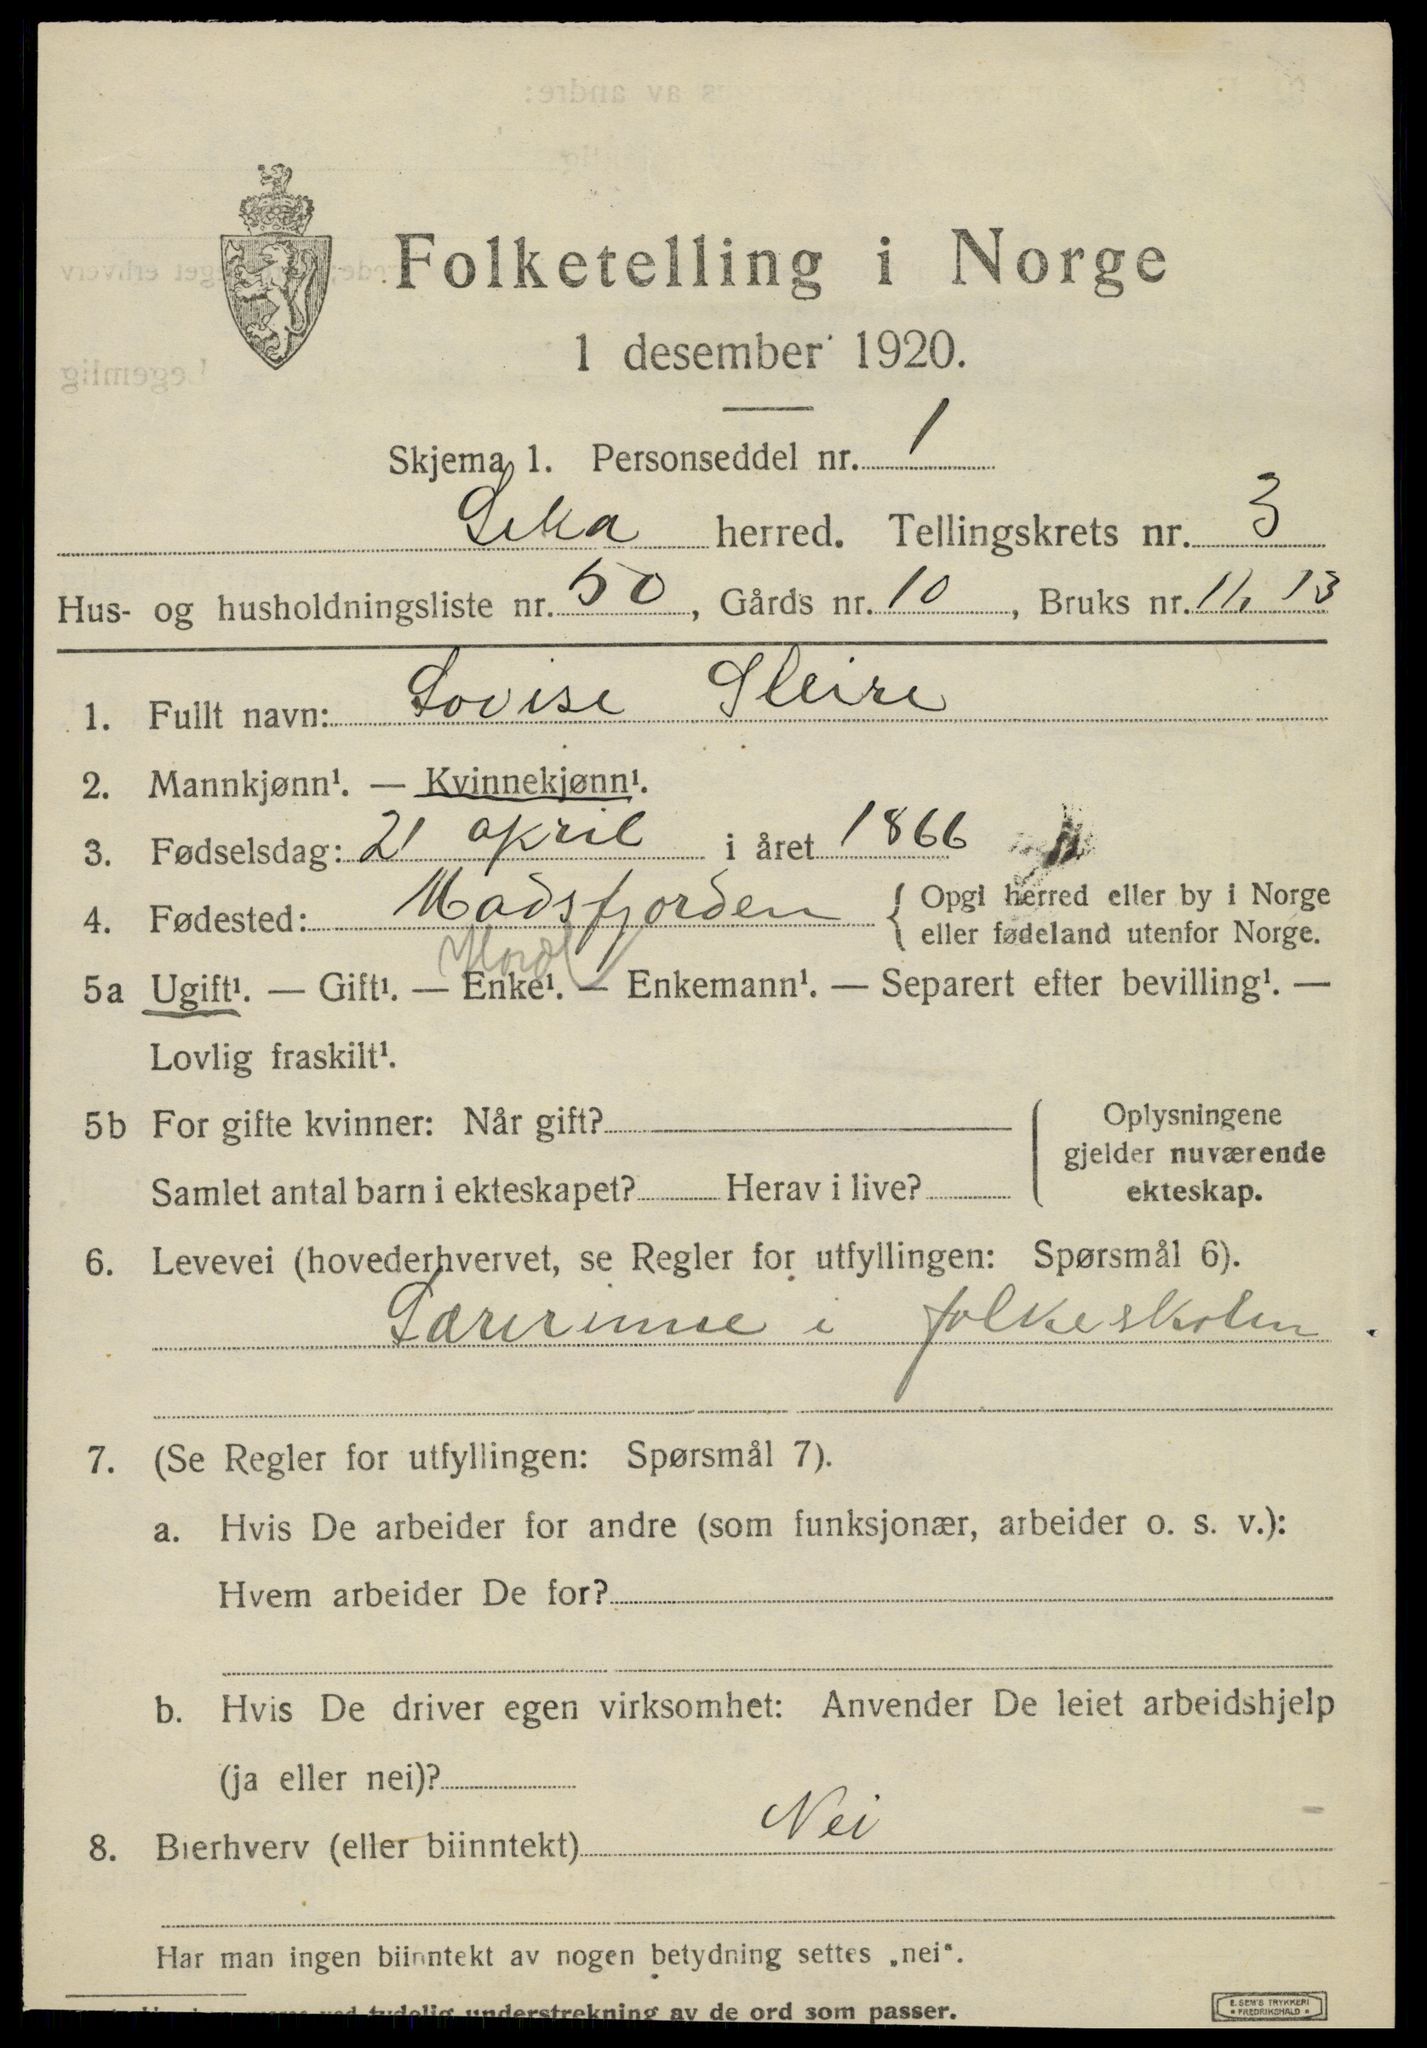 Folketelling i Norge
1 desember 1920.
Skjema 1. Personseddel nr. 1
Leka herred. Tellingskrets nr. 3
Hus- og husholdningsliste nr. 50, Gårds nr. 10, Bruks nr. 11, 13
1. Fullt navn: Lovise Sleire
2. Mannkjønn¹. — Kvinnekjønn¹.
3. Fødselsdag: 21 april i året 1866
4. Fødested: Madsfjorden { Opgi herred eller by i Norge
eller fødeland utenfor Norge.
5a Ugift¹. — Gift¹. — Enke¹. — Enkemann¹. — Separert efter bevilling¹. —
Lovlig fraskilt¹.
5b For gifte kvinner: Når gift? { Oplysningene
gjelder nuværende
Samlet antal barn i ekteskapet? Herav i live? ekteskap.
6. Levevei (hovederhvervet, se Regler for utfyllingen: Spørsmål 6).
Lærerinne i folkeskolen
7. (Se Regler for utfyllingen: Spørsmål 7).
a. Hvis De arbeider for andre (som funksjonær, arbeider o. s. v.):
Hvem arbeider De for?
b. Hvis De driver egen virksomhet: Anvender De leiet arbeidshjelp
(ja eller nei)?
8. Bierhverv (eller biinntekt) Nei
Har man ingen biinntekt av nogen betydning settes „nei“.
tydelig understrekning av de ord som passer.
E. SEM'S TRYKKERI
FREDRIKSHALD